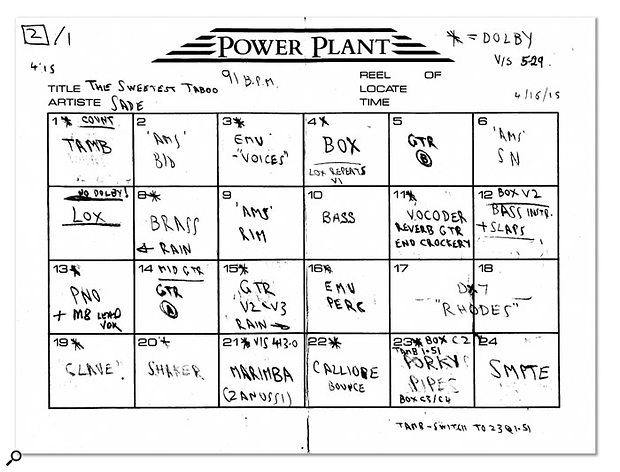 2/1
POWER PLANT
* = DOLBY
V/S 529.
4'15
TITLE THE SWEETEST TABOO
91 B.P.M.
ARTISTE SADE
REEL OF
LOCATE
TIME
4/15/15
1* COUNT
TAMB
2
'AMS'
3*
EMU
-"VOICES"
4*
BOX
LOX REPEATS
V1
5
GTR
B
6
'AMS'
SN
NO DOLBY!
LOX
8*
BRASS
← RAIN
9
'AMS'
RIM
10
BASS
11*
VOCODER
REVERB GTR
END CROCKERY
12 BOX V2
BASS INSTR.
+ SLAPS
13*
PNO
+ M8 LEAD
VOX
14 MID GTR
GTR
A
15*
GTR
V2 + V3
RAIN →
16*
EMU
PERC
17
18
DX7
"RHODES"
19*
CLAVE
20*
SHAKER
21* V/S 413.0
MARIMBA
(ZANUSSI)
22*
CALLIOPE
BOUNCE
23* BOX C2
TAMB 1.51
PORKY
PIPES
BOX C3/C4
24
SMPTE
TAMB-SWITCH TO 23@1.51